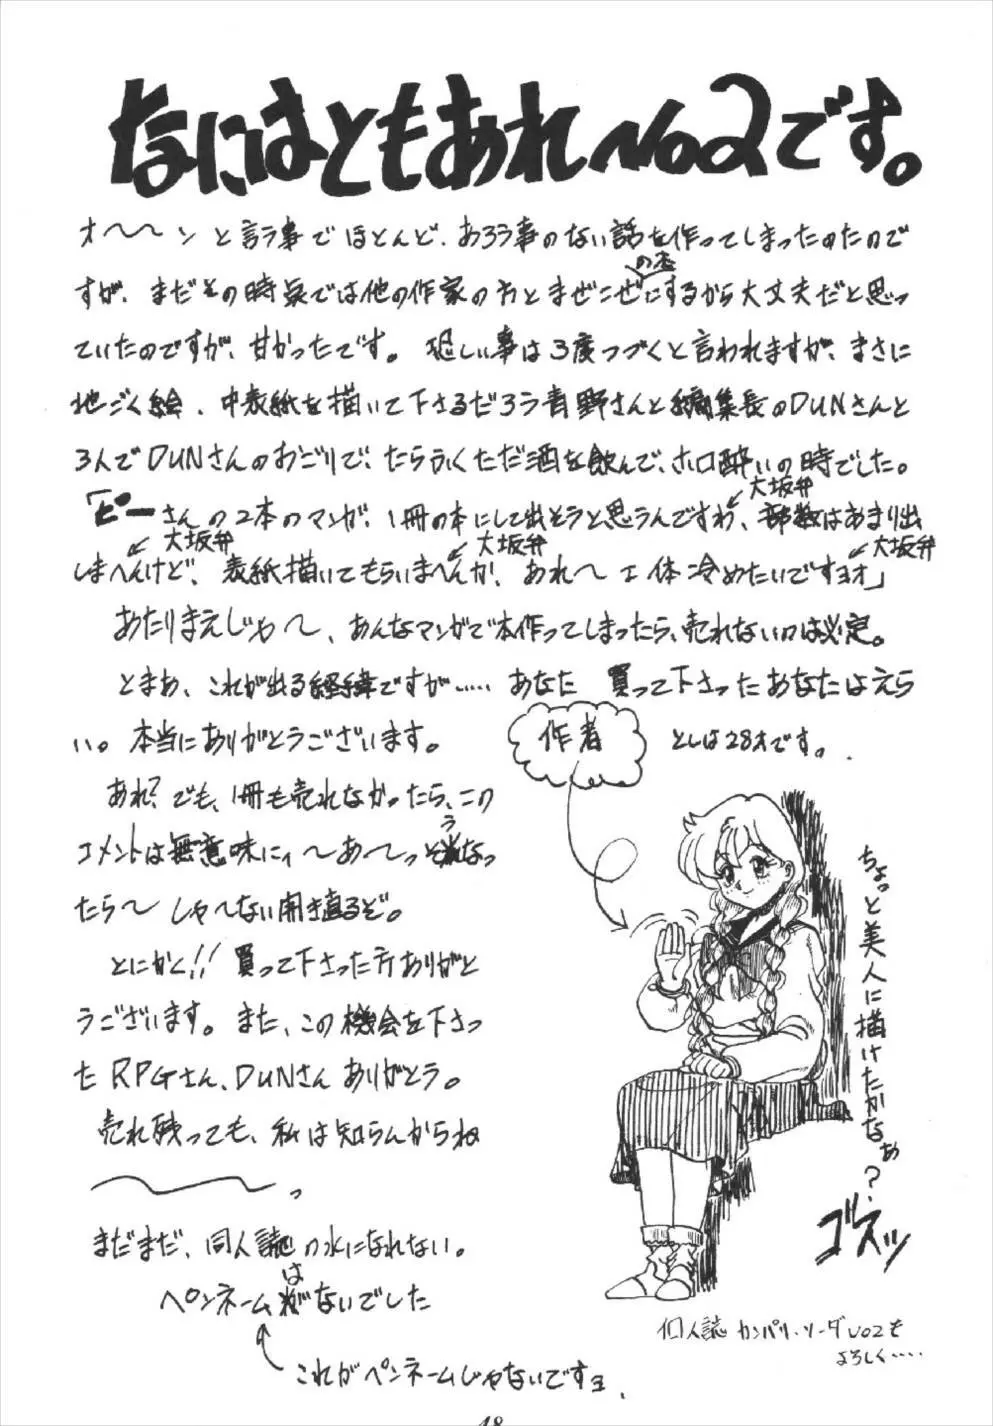 なにはともあれNo2です。
オ〜〜ンと言う事でほとんど、あろう事のない話を作ってしまったのたので
すが、まだその時点では他の作家の方とまぜこぜにするから大丈夫だと思っ
の本
ていたのですが、甘かったです。恐しい事は3度つづくと言われますが、まさに
地ごく絵、中表紙を描いて下さるだろう青野さんと編集長のDUNさんと
3人でDUNさんのおごりで、たらふくただ酒を飲んで、ホロ酔いの時でした。
大坂弁
「ピーさんの2本のマンガ、1冊の本にして出そうと思うんですわ、部数はあまり出
大坂弁 大坂弁 大坂弁
しまへんけど、表紙描いてもらいまへんか、あれ〜エ体冷めたいですヨオ」
あたりまえじゃ〜、あんなマンガで本作ってしまったら、売れないのは必定。
とまあ、これが出る経緯ですが……あなた 買って下さったあなたはえら
い。本当にありがとうございます。
作者
としは28才です。
あれ?でも、1冊も売れなかったら、この
コメントは無意味にィ〜あ〜っそうなっ
たら〜しゃ〜ない開き直るぞ。
とにかく!!買って下さった方ありがと
うございます。また、この機会を下さっ
たRPGさん、DUNさんありがとう。
売れ残っても、私は知らんからね
〜〜っ
まだまだ、同人誌の水になれない。
ペンネームはないでした
これがペンネームじゃないですョ、
ちょっと美人に描けたかなぁ?
ゴルスッ
個人誌 カンパリ・ソーダVO2も
よろしく‥‥
18